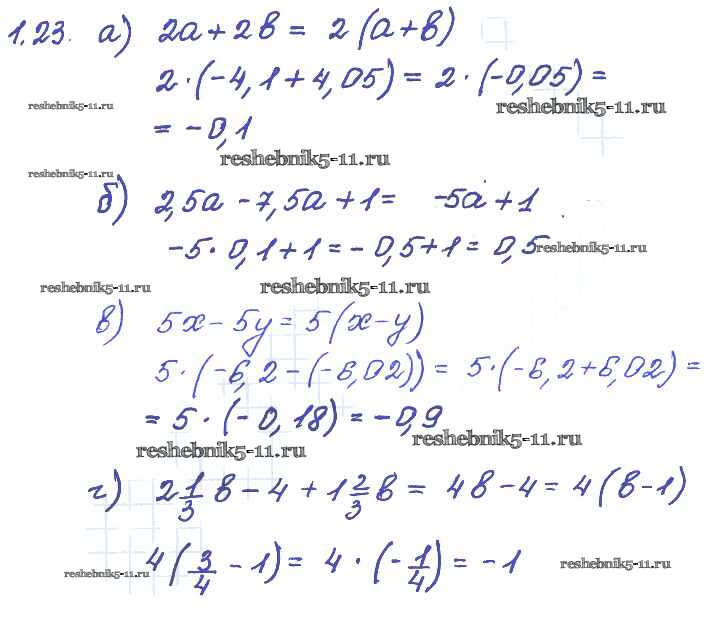 1.23. а) 2а + 2в = 2(а+в)
2·(-4,1 + 4,05) = 2·(-0,05) =
reshebnik5-11.ru reshebnik5-11.ru
= -0,1
reshebnik5-11.ru
reshebnik5-11.ru
б) 2,5а - 7,5а + 1 = -5а + 1
-5·0,1+1 = -0,5+1 = 0,5 reshebnik5-11.ru
reshebnik5-11.ru reshebnik5-11.ru
в) 5х - 5у = 5(х-у)
5·(-6,2-(-6,02)) = 5·(-6,2+6,02) =
= 5·(-0,18) = -0,9
reshebnik5-11.ru reshebnik5-11.ru
г) 2 1/3 в - 4 + 1 2/3 в = 4в - 4 = 4(в-1)
4(3/4 - 1) = 4·(-1/4) = -1
reshebnik5-11.ru reshebnik5-11.ru